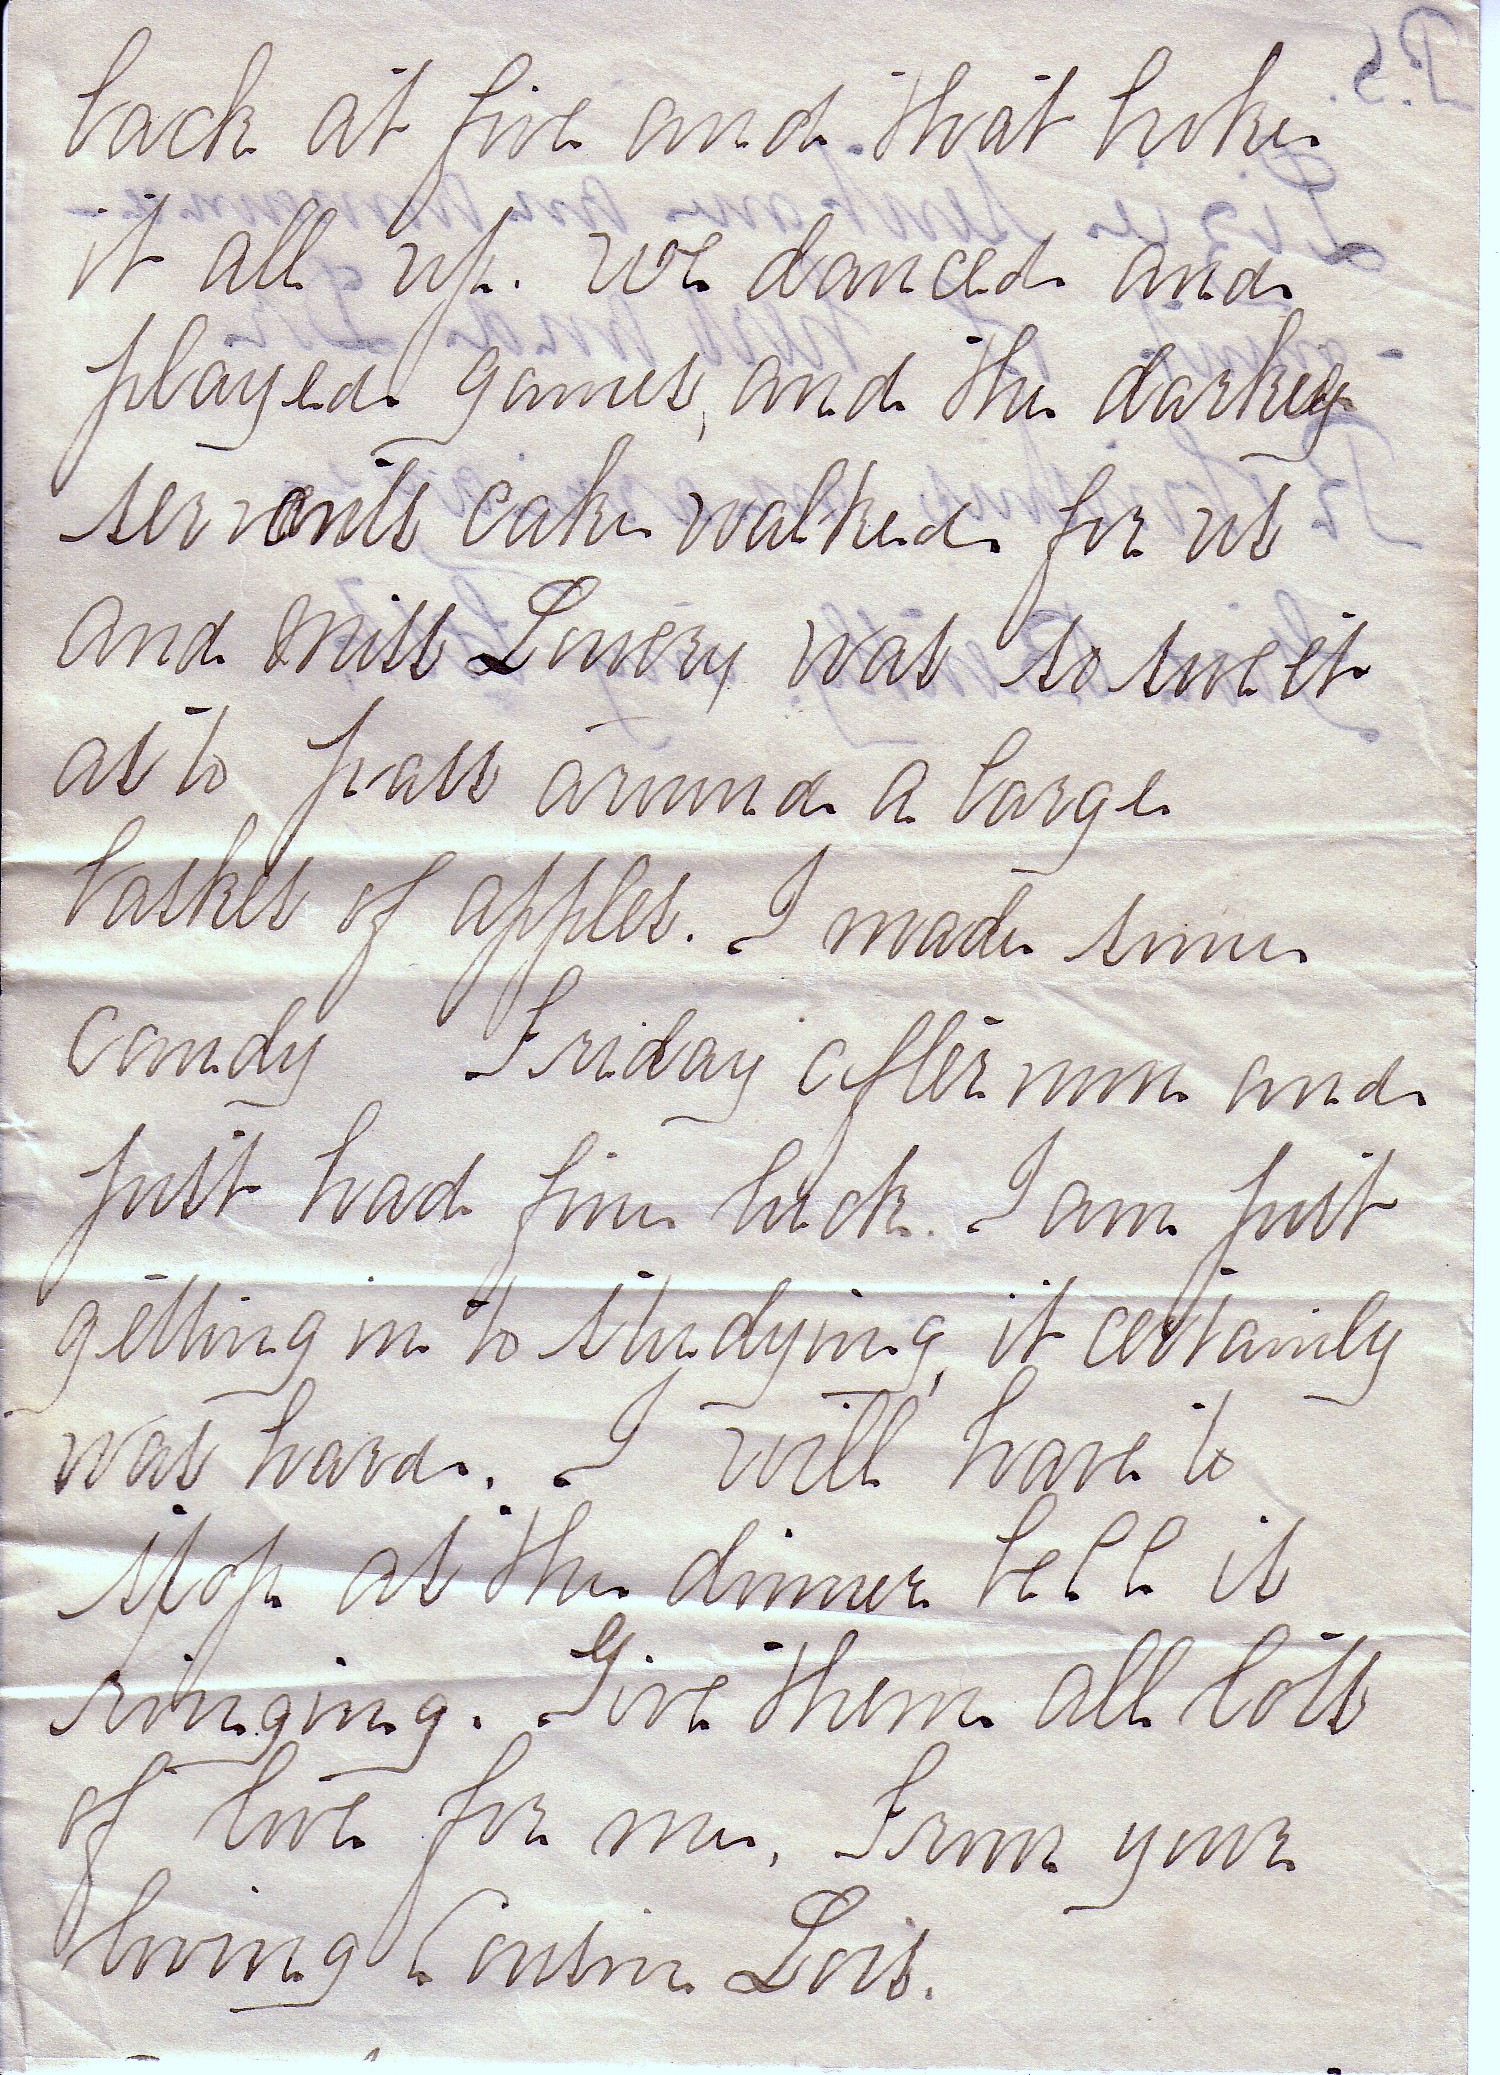 back at five and that broke
it all up. We danced and
played games, and the darkey
servants cake walked for us
and Miss Lowery was so sweet
as to pass around a large
basket of apples. I made some
candy Friday afternoon and
just had fine luck. I am just
getting in to studying, it certainly
was hard. I will have to
stop as the dinner bell is
ringing. Give them all lots
of love for me. From your
loving Cousin Lois.
P.S.